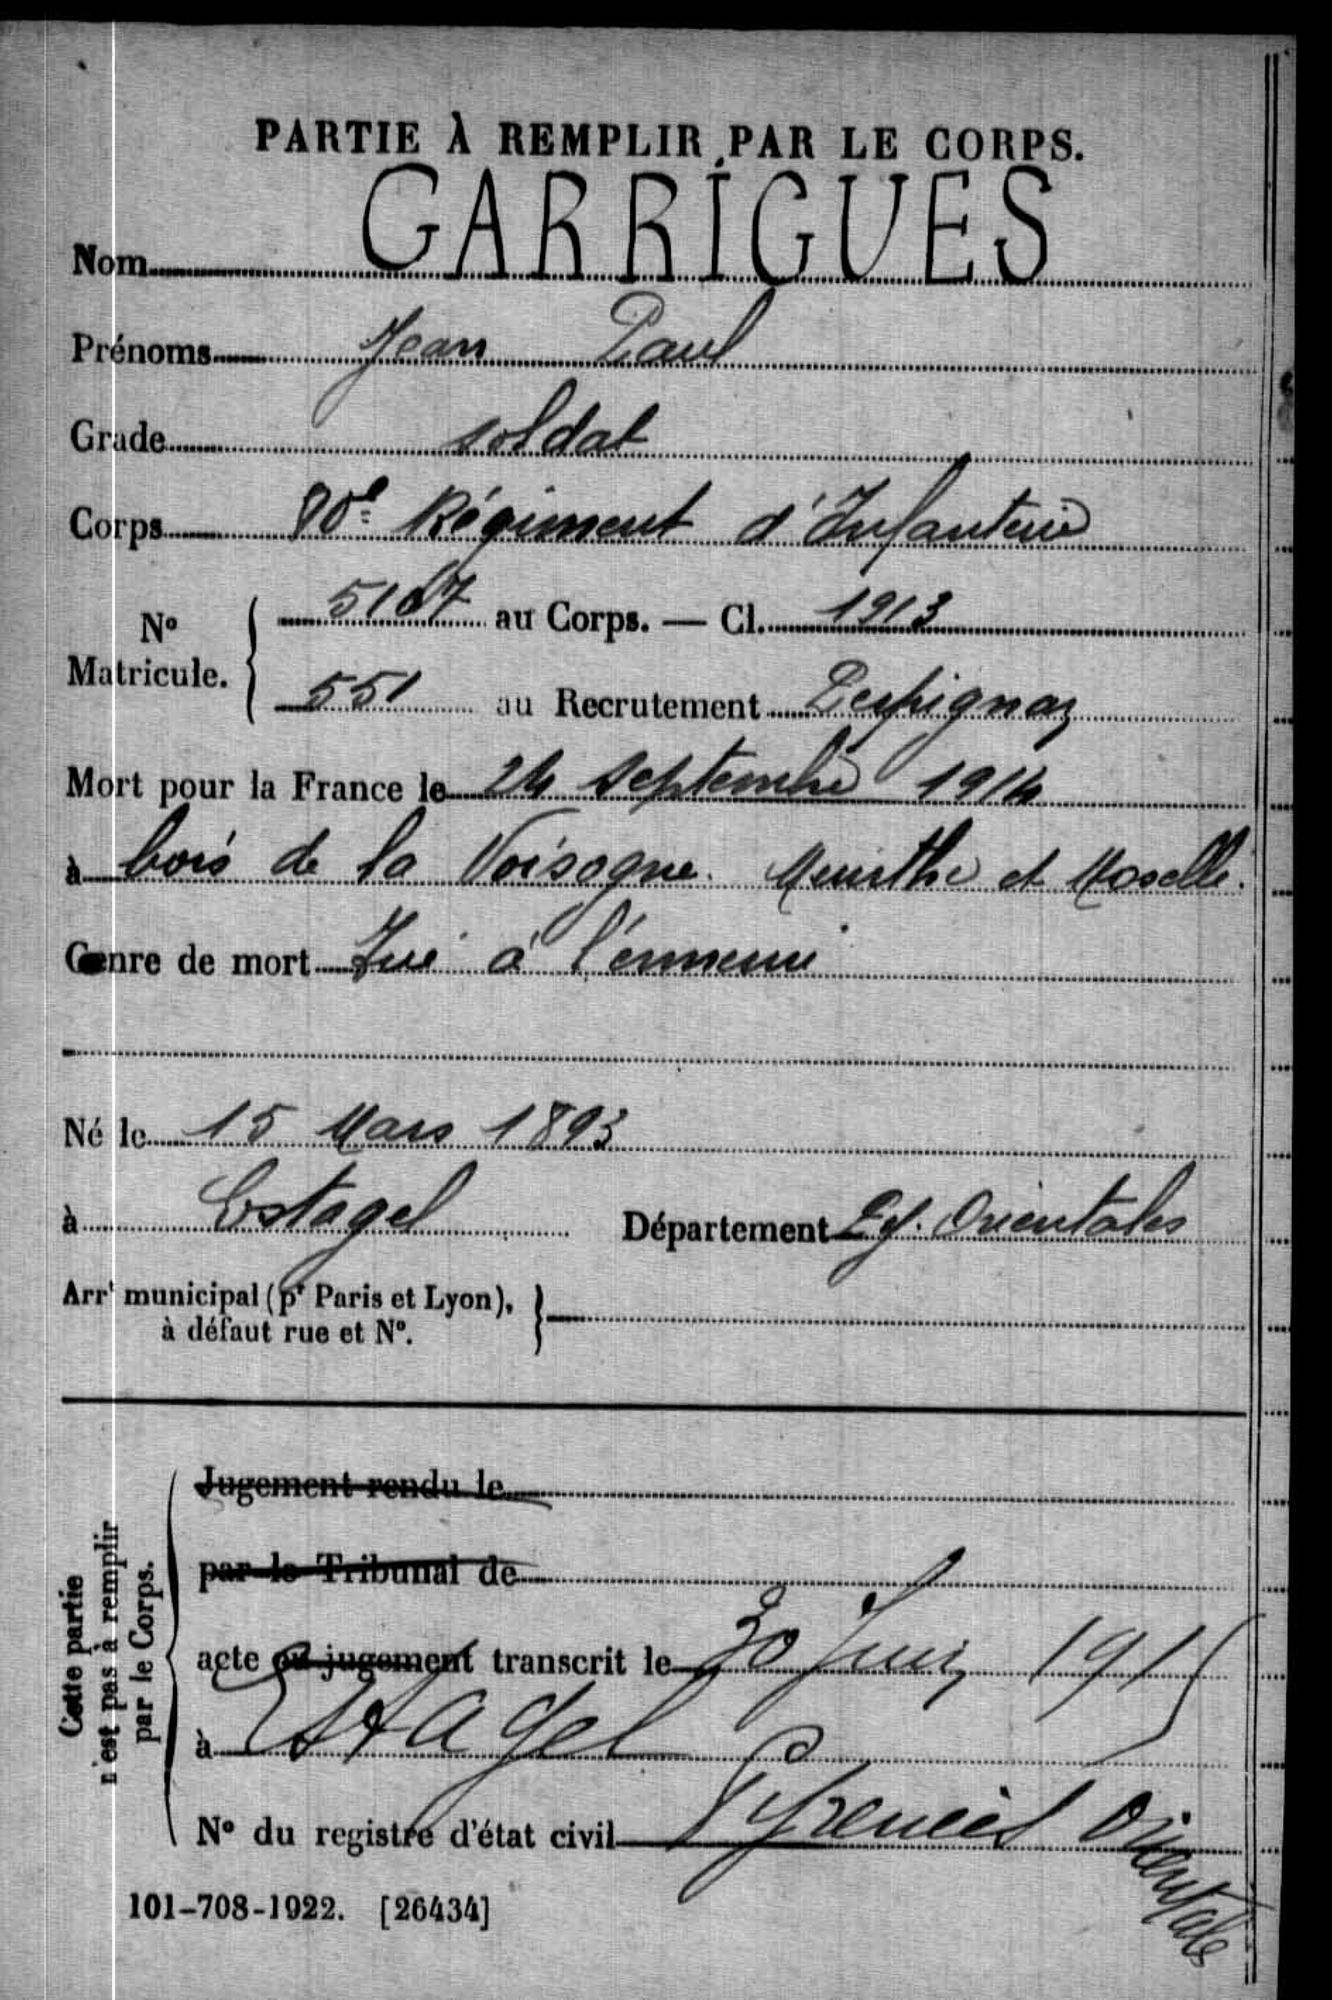 PARTIE À REMPLIR PAR LE CORPS.
Nom GARRIGUES
Prénoms Jean Paul
Grade soldat
Corps 80e Régiment d'Infanterie
N° Matricule. 5107 au Corps. — Cl. 1913
551 au Recrutement Perpignan
Mort pour la France le 24 septembre 1914
à bois de la Voisogne. Meurthe et Moselle.
Genre de mort Tué à l'ennemi
Né le 15 Mars 1893
à Estagel Département Py. Orientales
Arrt municipal (pr Paris et Lyon),
à défaut rue et N°.
Cette partie
n'est pas à remplir
par le Corps.
Jugement rendu le
par le Tribunal de
acte ou jugement transcrit le 30 Juin 1915
à Estagel
N° du registre d'état civil Pyrenées Orientales
101-708-1922. [26434]